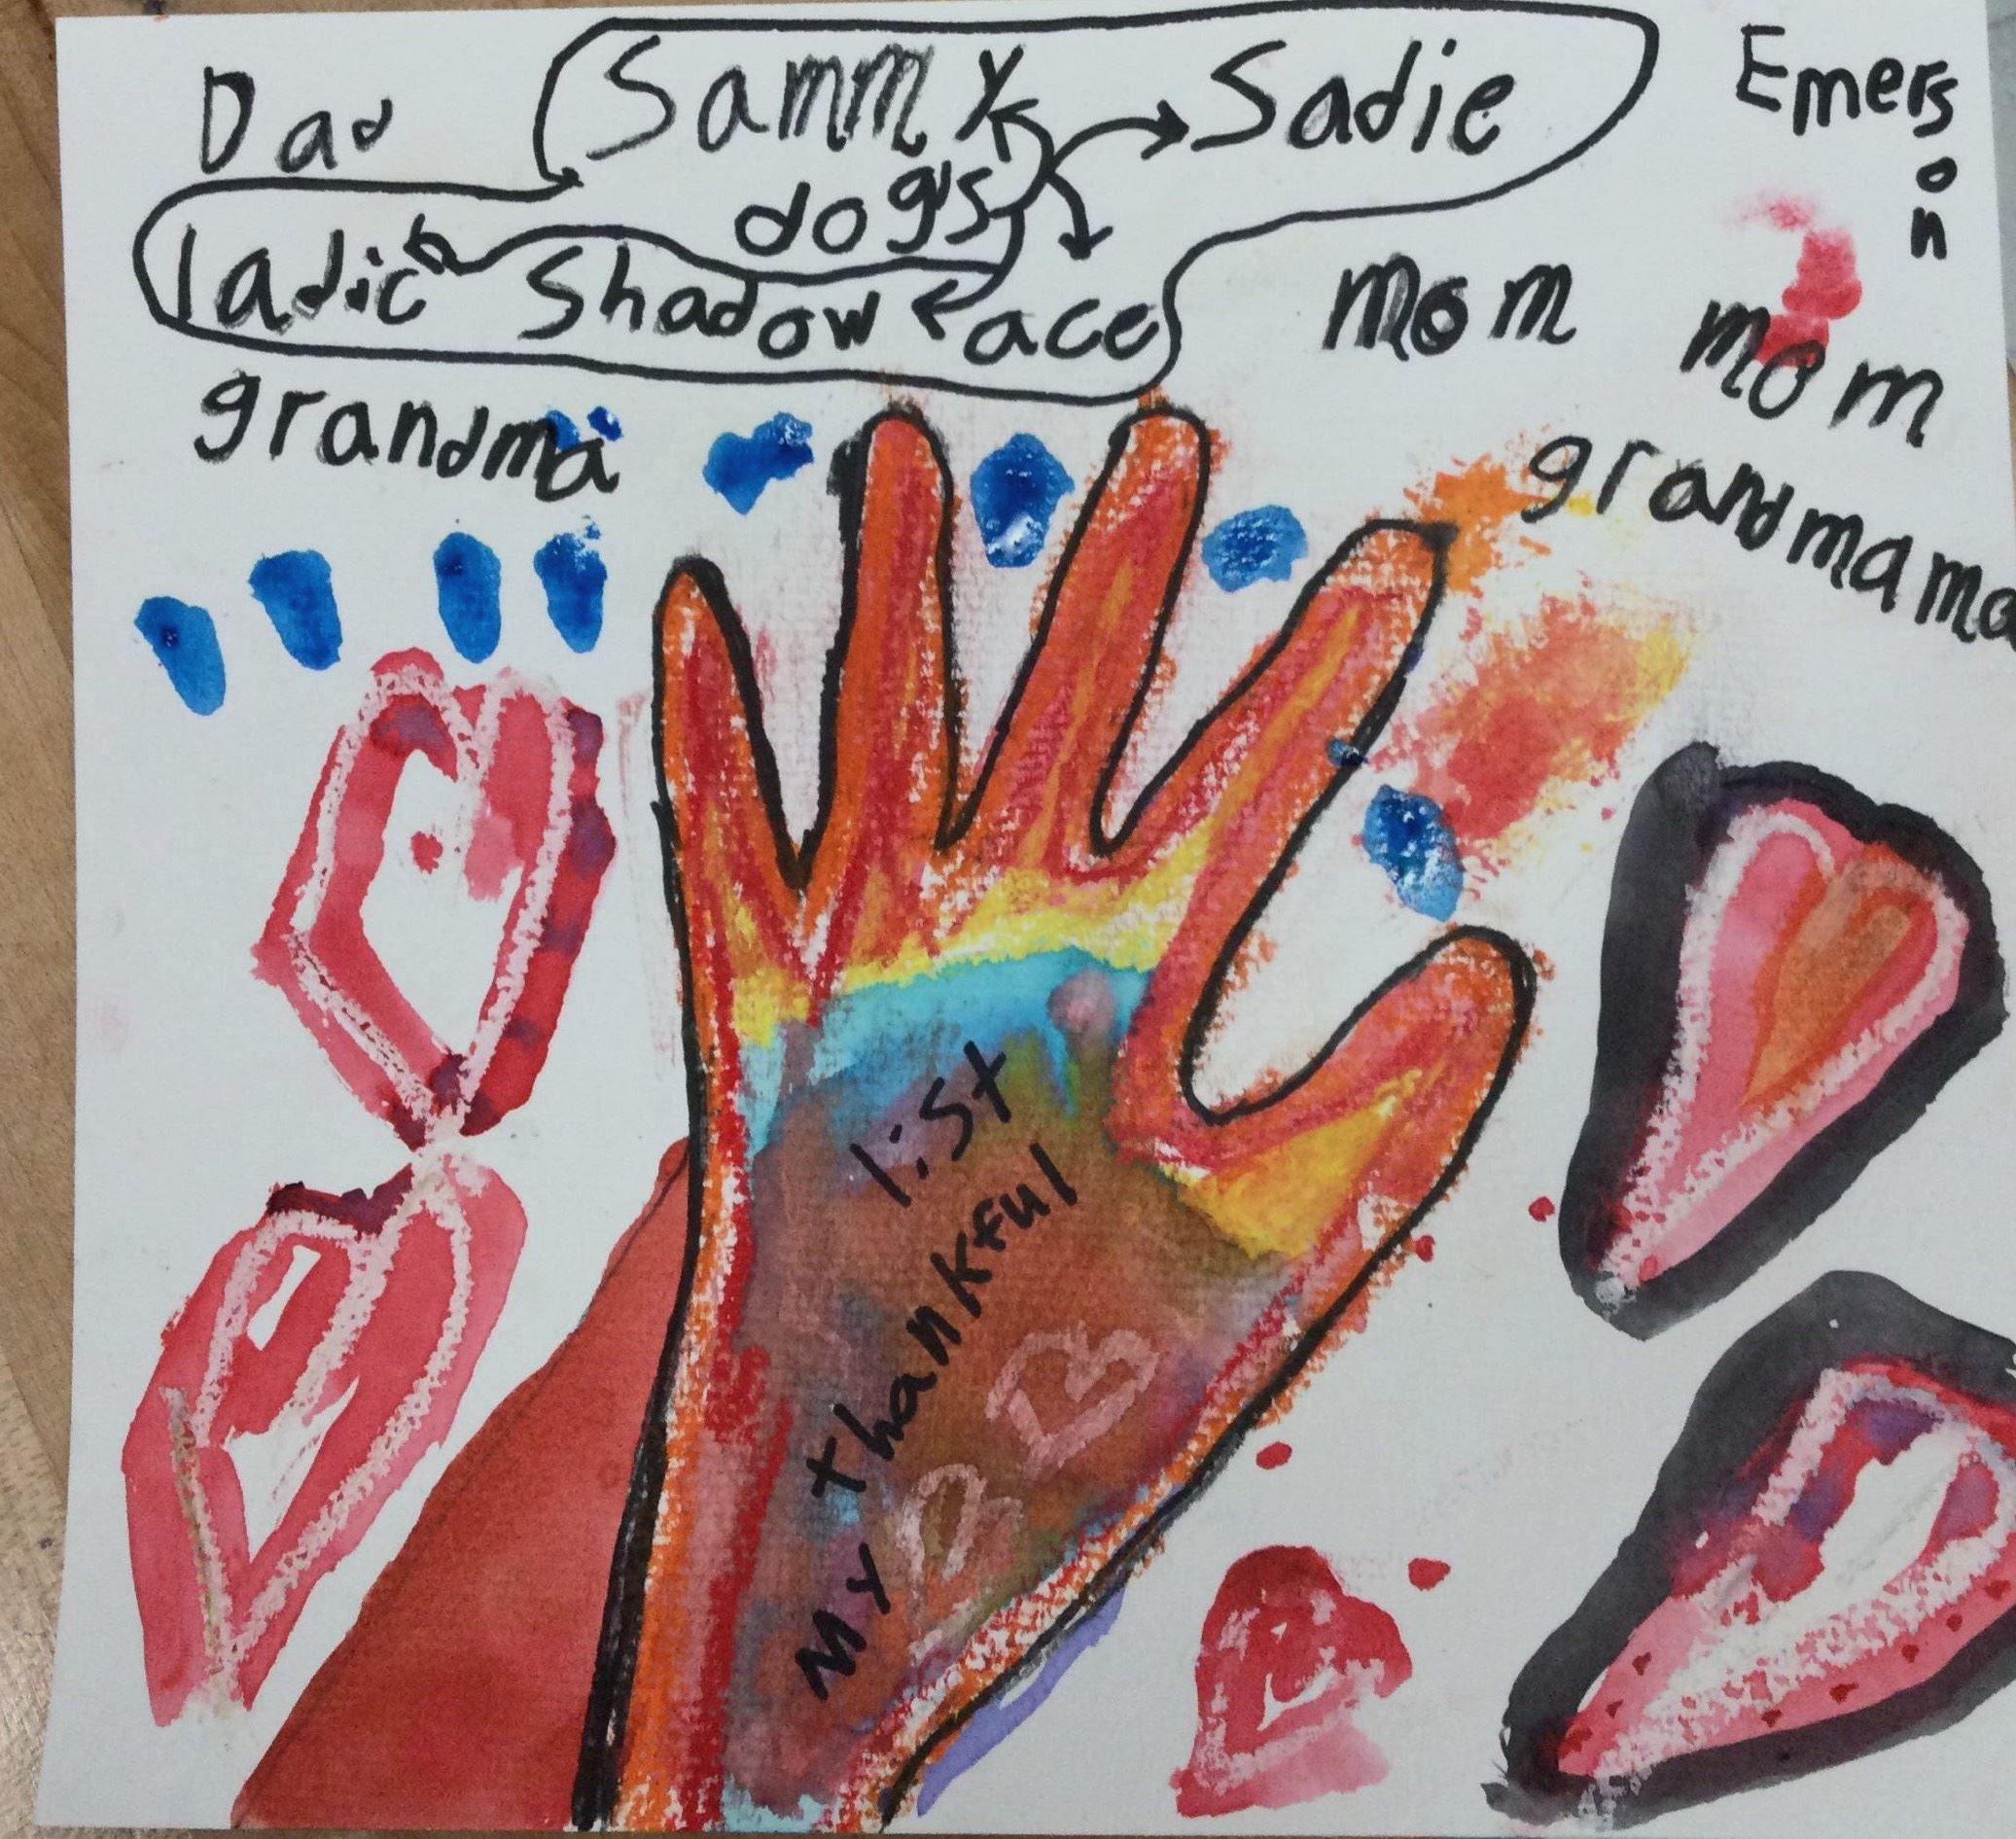 Dad Sammy Sadie Emerson
dogs
ladie Shadow ace mom mom
grandma grandmama
list
My thankful